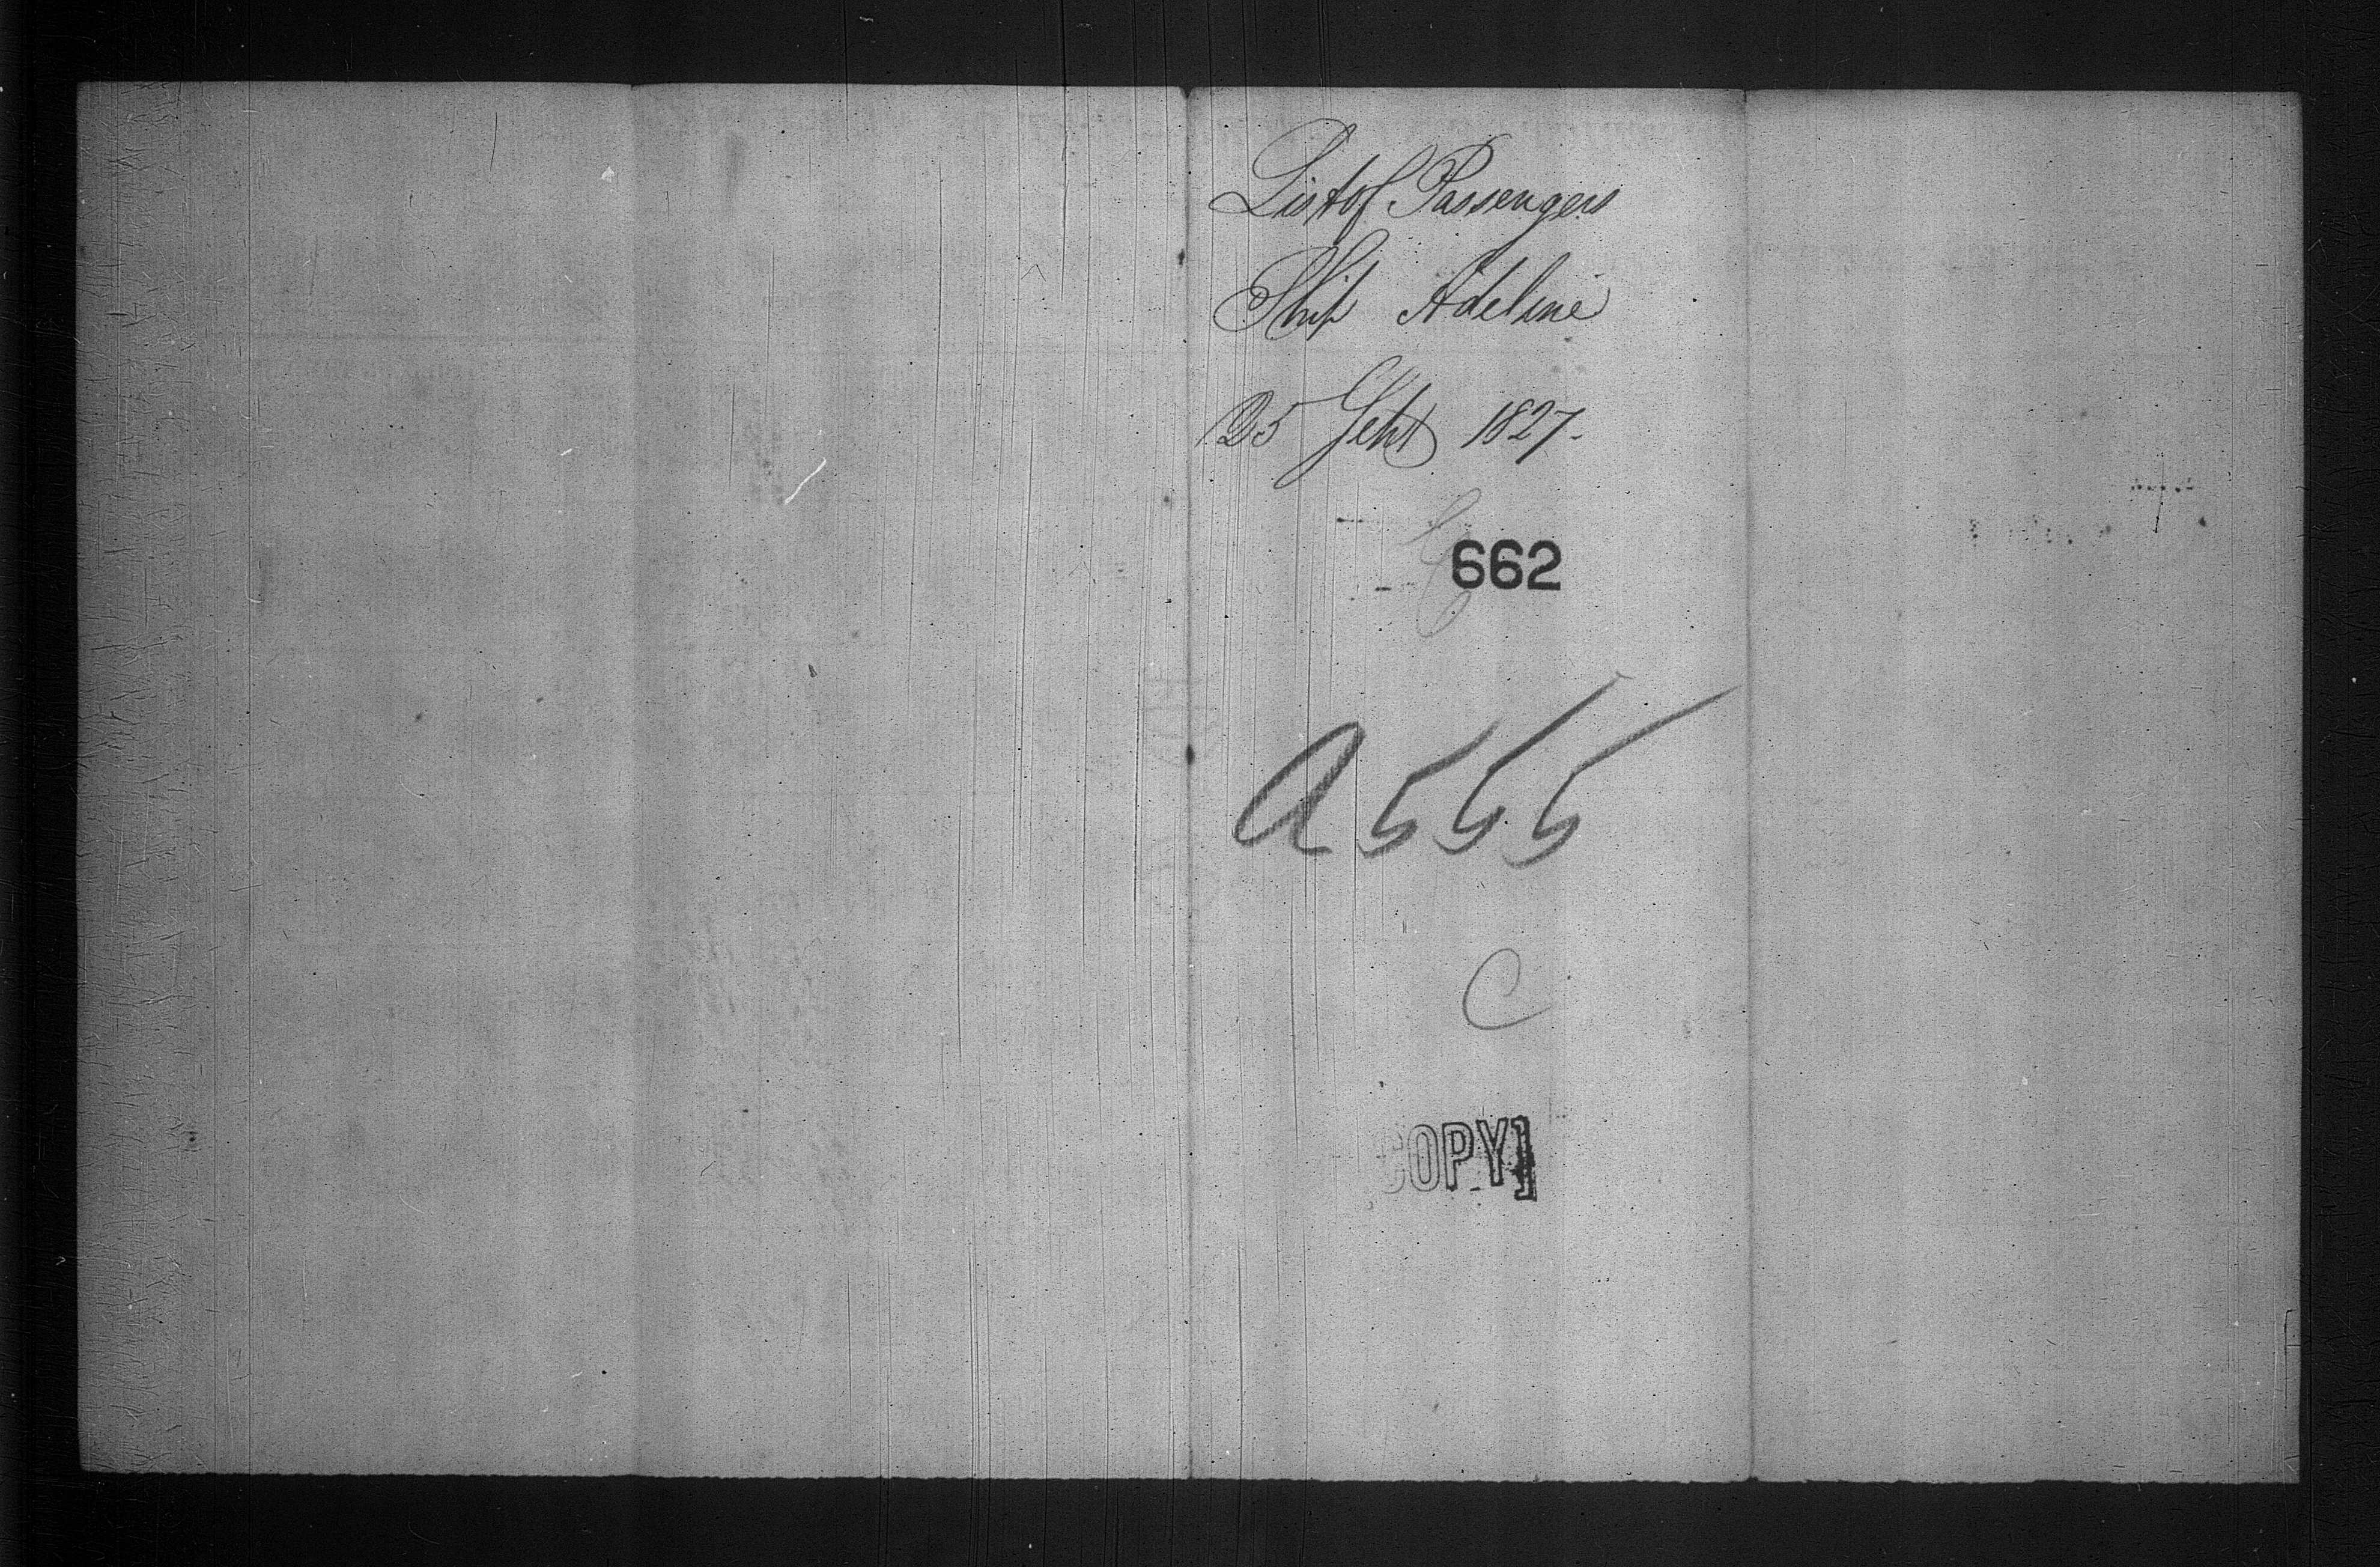 List of Passengers
Ship Adeline
25 Sept 1827.
662
A555
C
COPY]